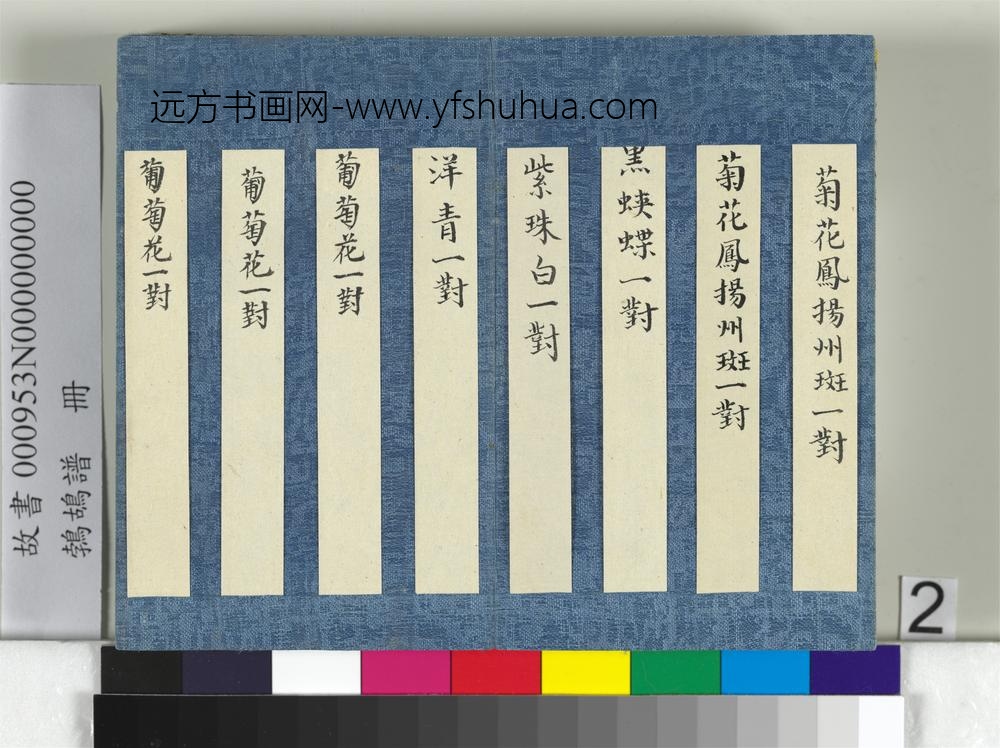 远方书画网-www.yfshuhua.com
菊花鳳揚州斑一對
菊花鳳揚州斑一對
黑蛺蝶一對
紫珠白一對
洋青一對
葡萄花一對
葡萄花一對
葡萄花一對
故書 000953N000000000
鵓鴣譜 冊
2